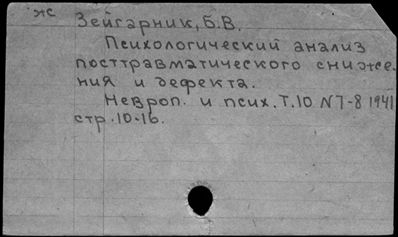 жс
Зейгарник, Б.В.
Психологический анализ
посттравматического сниже-
ния и дефекта.
Невроп. и псих. Т.10 N7-8 1941
стр.10-16.